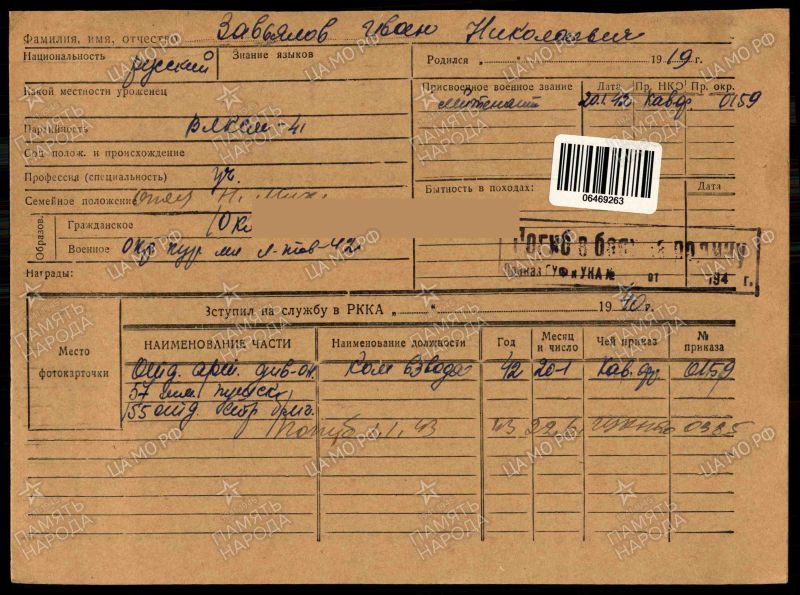 Фамилия, имя, отчество Завьялов Иван Николаевич
Национальность русский Знание языков
Родился „ “ 1919 г.
Какой местности уроженец
Присвоенное военное звание Дата Пр. НКО Пр. окр.
лейтенант 20.1.42 Кав.фр. 0159
Партийность ВЛКСМ-41
Соц полож. и происхождение
Профессия (специальность) уч.
Семейное положение отец Н. Мих.
Бытность в походах: Дата
06469263
Образов.
Гражданское 10 кл
Военное мл л-тов-42г
Награды:
Погиб в боях за родину
Приказ ГУФ и УКА № от 194 г.
Вступил на службу в РККА „ “ 1940 г.
Место фотокарточки
НАИМЕНОВАНИЕ ЧАСТИ Наименование должности Год Месяц и число Чей приказ № приказа
Отд. арт. див-он Ком взвода 42 20-1 Кав.фр. 0159
57 мм. пушек
155 отд стр бриг.
Погиб 1.43 43 22.6 0385
ПАМЯТЬ НАРОДА
ЦАМО.РФ